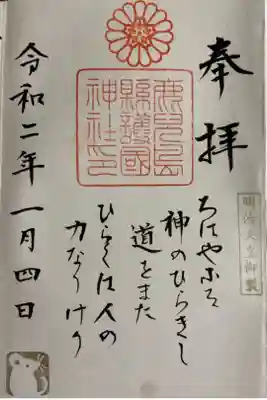 奉拝
鹿兒島
縣護國
神社印
明治天皇御製
ちはやふる
神のひらきし
道をまた
ひらくは人の
力なりけり
令和二年一月四日